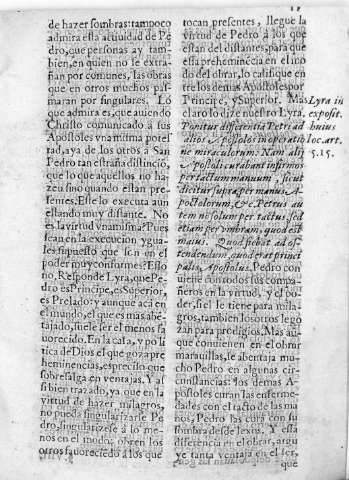 de hazer sombras: tampoco
admira esta actiuidad de Pe
dro, que personas ay tam
bien, en quien no le extra-
ñan por comunes, las obras
que en otros muchos pas-
maran por singulares. Lo
que admira es, que auiendo
Christo comunicado à sus
Apostoles vna misma potes
tad, aya de los otros à San
Pedro tan estraña distinciõ,
que lo que aquellos no ha-
zen sino quando estan pre-
sentes. Este lo executa aun
estando muy distante. No
es la virtud vna misma? Pues
sean en la execucion ygua-
les supuesto que son en el
poder muy conformes? Esso
no, Responde Lyra, que Pe-
dro es Principe, es Superior,
es Prelado: y aunque acà en
el mundo, el que es mas abe-
tajado, suele ser el menos fa
uorecido. En la casa, y poli
tica de Dios el que goza pre
heminencias, es preciso que
sobresalga en ventajas. Y as
si bien trazado, ya que en la
virtud de hazer milagros,
no pueda singularizarse Pe
dro, singularizese à lo me-
nos en el modo; obren los
otros fauoreciedo à los que
tocan presentes, llegue la
virtud de Pedro à los que
estan distantes, para que
esta preheminẽcia en el mo
do del obrar, lo califique en
tre los demas Apostoles por
Principe, y Superior. Mas
claro lo dize nuestro Lyra.
Ponitur differentia Petri ad
alios Apostolos in operatio
ne miraculorum: Nam alij
Apostoli curabant infirmos
per tactum manuum, sicut
dicitur supra per manus A-
postolorum, &c. Petrus au
tem non solum per tactus, sed
etiam per vmbram, quod est
maius. Quod fiebat ad os-
tendendum, quod erat princi
palis Apostolus. Pedro con
uiene con todos sus compa-
ñeros en la virtud, y el po-
der, si el le tiene para mila-
gros, tambien los otros le go
zan para prodigios. Mas au-
que conuienen en el obrar
marauillas, le abentaja mu-
cho Pedro en algunas cir-
cunstancias: los demas A-
postoles curan las enferme-
dades con el tacto de las ma
nos, Pedro las cura con su
sombra desde lexos. Y esta
diferencia en el obrar, argu
ye tanta ventaja en el ser,
que
Lyra in
exposit.
huius
loc. art.
5.15.